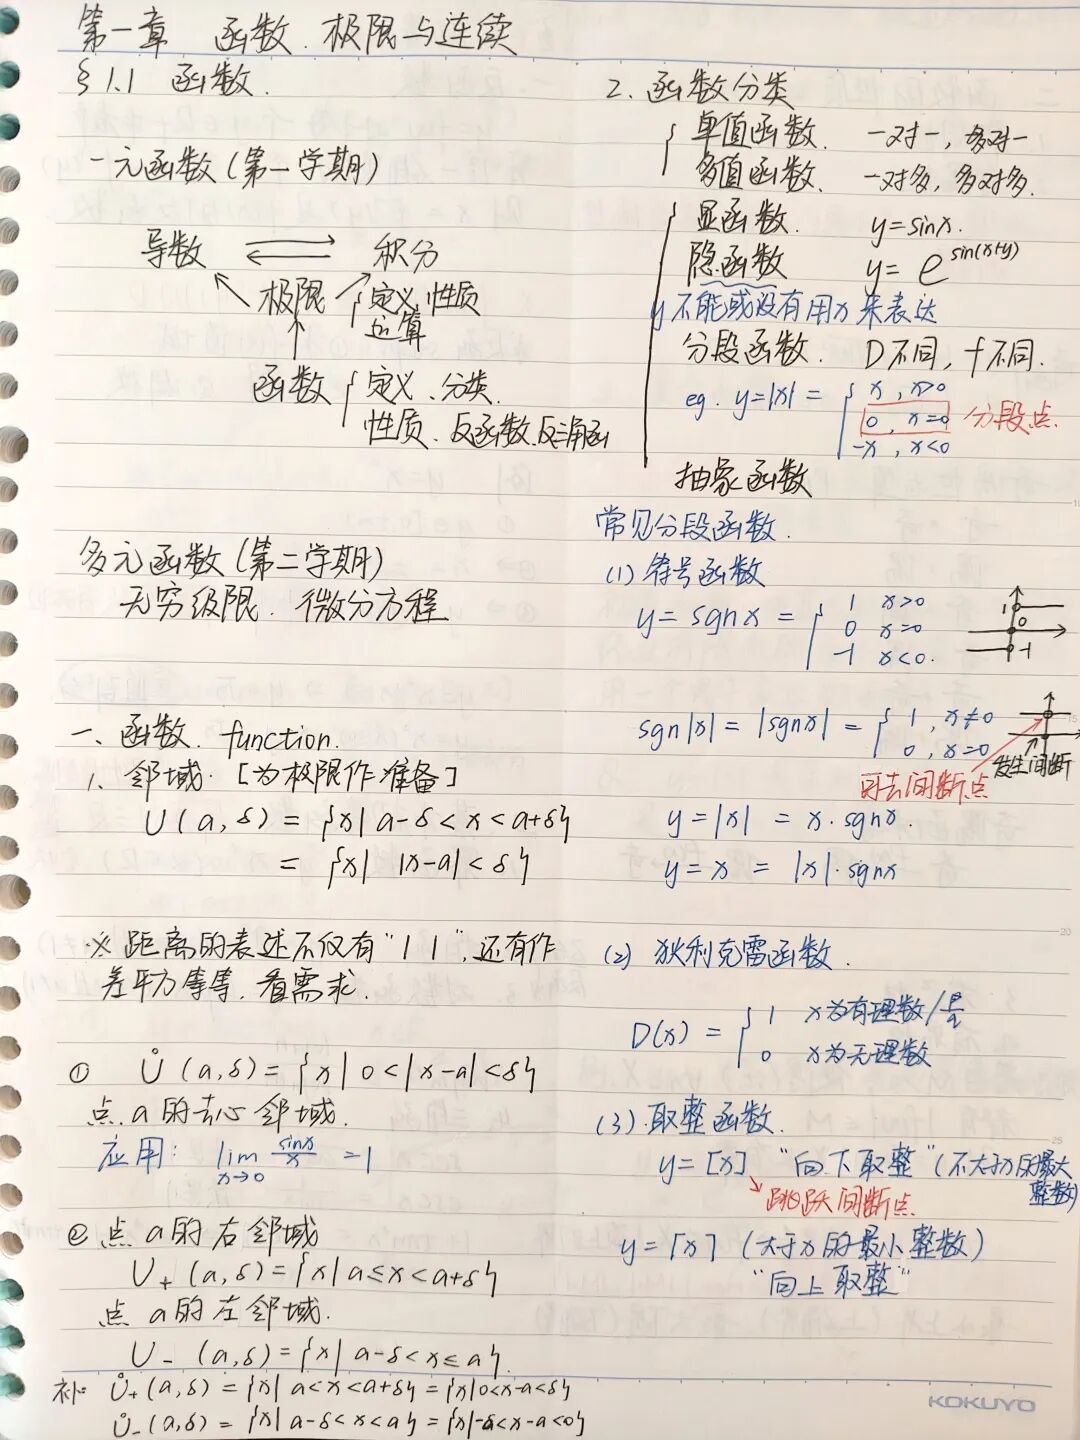 第一章 函数、极限与连续
§1.1 函数.
一元函数(第一学期)
导数 ⇌ 积分
极限 { 定义, 性质
运算
函数 { 定义、分类.
性质、反函数、反三角函
多元函数(第二学期)
无穷级限、微分方程
一、函数. function.
1. 邻域. [为极限作准备]
U(a,δ) = {x| a-δ<x<a+δ}
= {x| |x-a|<δ}
※ 距离的表述不仅有"| |", 还有作
差平方等等, 看需求.
① Ů(a,δ) = {x| 0<|x-a|<δ}
点 a 的去心邻域.
应用: lim x→0 sinx/x = 1
② 点 a 的右邻域
U₊(a,δ) = {x| a≤x<a+δ}
点 a 的左邻域.
U₋(a,δ) = {x| a-δ<x≤a}.
补: Ů₊(a,δ) = {x| a<x<a+δ} = {x|0<x-a<δ}
Ů₋(a,δ) = {x| a-δ<x<a} = {x|-δ<x-a<0}
2. 函数分类
{ 单值函数. 一对一, 多对一
多值函数. 一对多, 多对多.
{ 显函数. y=sinx.
隐函数 y= e^sin(x+y)
y 不能或没有用 x 来表达
分段函数. D不同, f不同.
eg. y=|x| = { x, x>0
0, x=0 分段点.
-x, x<0
抽象函数
常见分段函数.
(1) 符号函数
y = sgn x = { 1 x>0
0 x=0
-1 x<0.
1 0 -1
sgn|x| = |sgnx| = { 1, x≠0
0, x=0
发生间断
可去间断点
y=|x| = x·sgnx.
y=x = |x|·sgnx
(2) 狄利克雷函数.
D(x) = { 1 x为有理数/p/q
0 x为无理数
(3) 取整函数.
y=[x] "向下取整" (不大于x的最大
整数)
跳跃间断点
y=⌈x⌉ (大于x的最小整数)
"向上取整"
KOKUYO